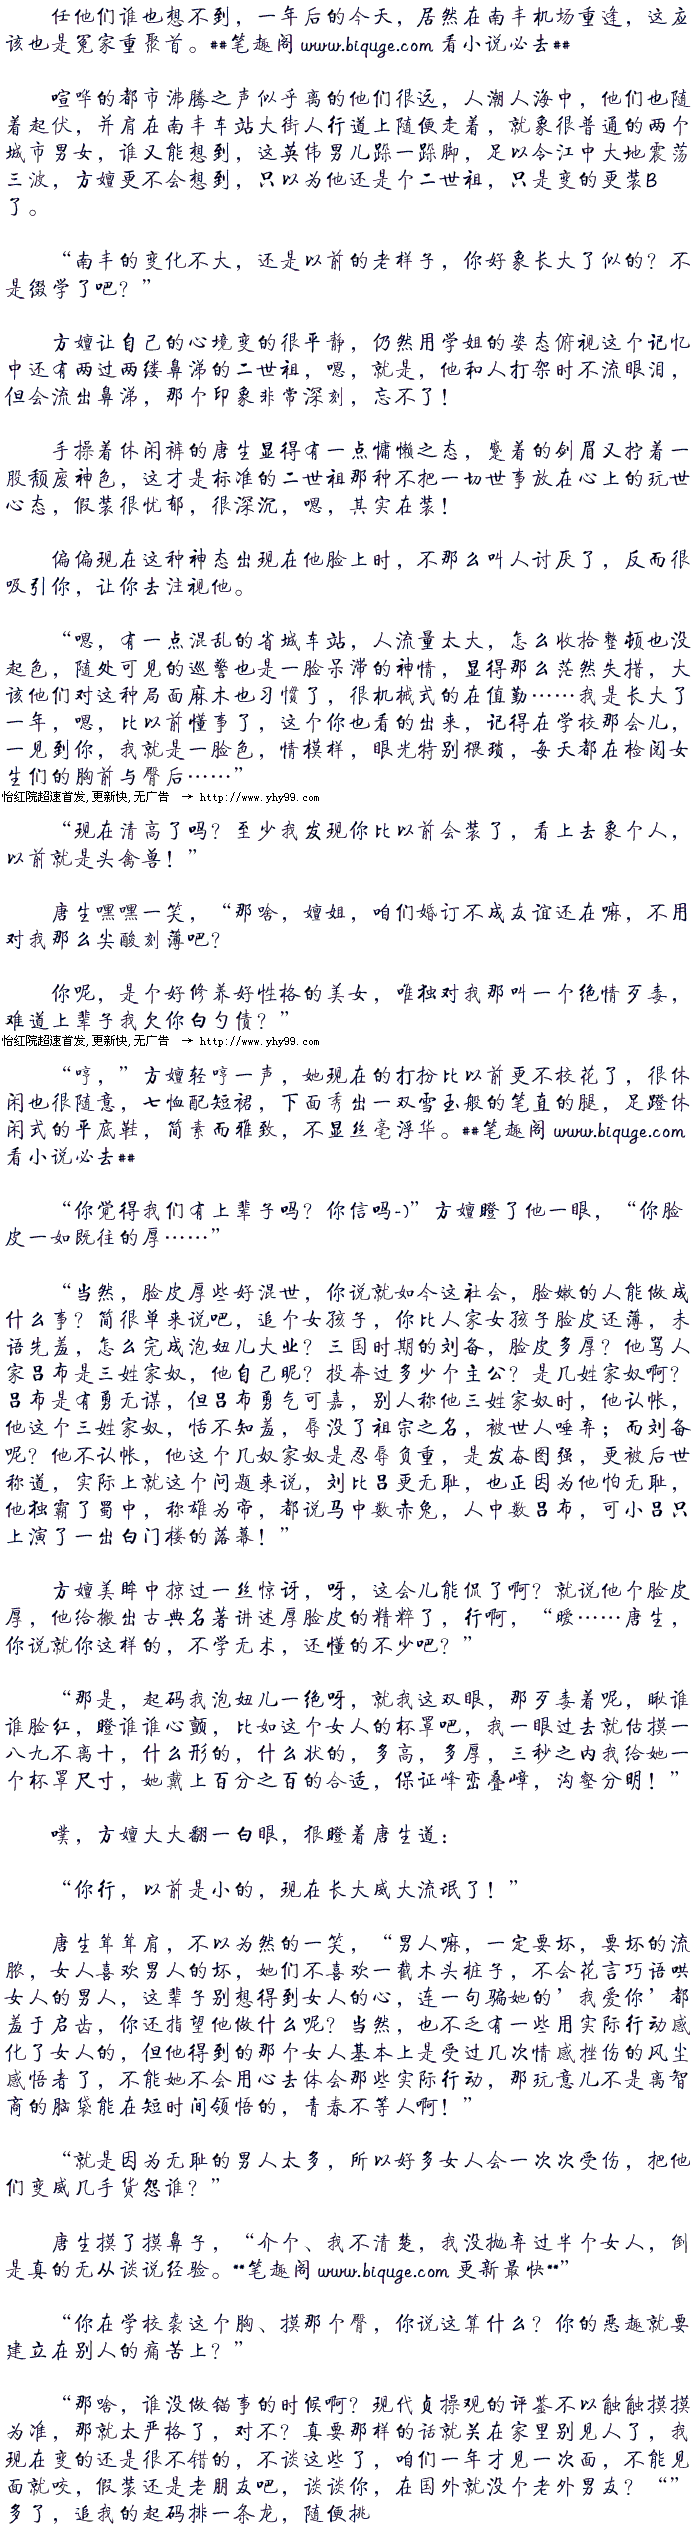 任他们谁也想不到，一年后的今天，居然在南丰机场重逢，这应
该也是冤家重聚首。##笔趣阁 www.biquge.com 看小说必去##
喧哗的都市沸腾之声似乎离的他们很远，人潮人海中，他们也随
着起伏，并肩在南丰车站大街人行道上随便走着，就象很普通的两个
城市男女，谁又能想到，这英伟男儿跺一跺脚，足以令江中大地震荡
三波，方嬗更不会想到，只以为他还是个二世祖，只是变的更装B
了。
“南丰的变化不大，还是以前的老样子，你好象长大了似的？不
是缀学了吧？”
方嬗让自己的心境变的很平静，仍然用学姐的姿态俯视这个记忆
中还有两过两缕鼻涕的二世祖，嗯，就是，他和人打架时不流眼泪，
但会流出鼻涕，那个印象非常深刻，忘不了！
手操着休闲裤的唐生显得有一点慵懒之态，蹙着的剑眉又拧着一
股颓废神色，这才是标准的二世祖那种不把一切世事放在心上的玩世
心态，假装很忧郁，很深沉，嗯，其实在装！
偏偏现在这种神态出现在他脸上时，不那么叫人讨厌了，反而很
吸引你，让你去注视他。
“嗯，有一点混乱的省城车站，人流量太大，怎么收拾整顿也没
起色，随处可见的巡警也是一脸呆滞的神情，显得那么茫然失措，大
该他们对这种局面麻木也习惯了，很机械式的在值勤……我是长大了
一年，嗯，比以前懂事了，这个你也看的出来，记得在学校那会儿，
一见到你，我就是一脸色，情模样，眼光特别猥琐，每天都在检阅女
生们的胸前与臀后……”
怡红院超速首发,更新快,无广告 → http://www.yhy99.com
“现在清高了吗？至少我发现你比以前会装了，看上去象个人，
以前就是头禽兽！”
唐生嘿嘿一笑，“那啥，嬗姐，咱们婚订不成友谊还在嘛，不用
对我那么尖酸刻薄吧？
你呢，是个好修养好性格的美女，唯独对我那叫一个绝情歹毒，
难道上辈子我欠你白勺债？”
怡红院超速首发,更新快,无广告 → http://www.yhy99.com
“哼，”方嬗轻哼一声，她现在的打扮比以前更不校花了，很休
闲也很随意，七恤配短裙，下面秀出一双雪玉般的笔直的腿，足蹬休
闲式的平底鞋，简素而雅致，不显丝毫浮华。##笔趣阁 www.biquge.com
看小说必去##
“你觉得我们有上辈子吗？你信吗-)”方嬗瞪了他一眼，“你脸
皮一如既往的厚……”
“当然，脸皮厚些好混世，你说就如今这社会，脸嫩的人能做成
什么事？简很单来说吧，追个女孩子，你比人家女孩子脸皮还薄，未
语先羞，怎么完成泡妞儿大业？三国时期的刘备，脸皮多厚？他骂人
家吕布是三姓家奴，他自己呢？投奔过多少个主公？是几姓家奴啊？
吕布是有勇无谋，但吕布勇气可嘉，别人称他三姓家奴时，他认帐，
他这个三姓家奴，恬不知羞，辱没了祖宗之名，被世人唾弃；而刘备
呢？他不认帐，他这个几奴家奴是忍辱负重，是发奋图强，更被后世
称道，实际上就这个问题来说，刘比吕更无耻，也正因为他怕无耻，
他独霸了蜀中，称雄为帝，都说马中数赤兔，人中数吕布，可小吕只
上演了一出白门楼的落幕！”
方嬗美眸中掠过一丝惊讶，呀，这会儿能侃了啊？就说他个脸皮
厚，他给搬出古典名著讲述厚脸皮的精粹了，行啊，“嗳……唐生，
你说就你这样的，不学无术，还懂的不少吧？”
“那是，起码我泡妞儿一绝呀，就我这双眼，那歹毒着呢，瞅谁
谁脸红，瞪谁谁心颤，比如这个女人的杯罩吧，我一眼过去就估摸一
八九不离十，什么形的，什么状的，多高，多厚，三秒之内我给她一
个杯罩尺寸，她戴上百分之百的合适，保证峰峦叠嶂，沟壑分明！”
噗，方嬗大大翻一白眼，狠瞪着唐生道：
“你行，以前是小的，现在长大威大流氓了！”
唐生耸耸肩，不以为然的一笑，“男人嘛，一定要坏，要坏的流
脓，女人喜欢男人的坏，她们不喜欢一截木头桩子，不会花言巧语哄
女人的男人，这辈子别想得到女人的心，连一句骗她的’我爱你’都
羞于启齿，你还指望他做什么呢？当然，也不乏有一些用实际行动感
化了女人的，但他得到的那个女人基本上是受过几次情感挫伤的风尘
感悟者了，不能她不会用心去体会那些实际行动，那玩意儿不是离智
商的脑袋能在短时间领悟的，青春不等人啊！”
“就是因为无耻的男人太多，所以好多女人会一次次受伤，把他
们变威几手货怨谁？”
唐生摸了摸鼻子，“介个、我不清楚，我没抛弃过半个女人，倒
是真的无从谈说经验。**笔趣阁 www.biquge.com 更新最快**”
“你在学校袭这个胸、摸那个臀，你说这算什么？你的恶趣就要
建立在别人的痛苦上？”
“那啥，谁没做错事的时候啊？现代贞操观的评鉴不以触触摸摸
为准，那就太严格了，对不？真要那样的话就关在家里别见人了，我
现在变的还是很不错的，不谈这些了，咱们一年才见一次面，不能见
面就咬，假装还是老朋友吧，谈谈你，在国外就没个老外男友？“”
多了，追我的起码排一条龙，随便挑